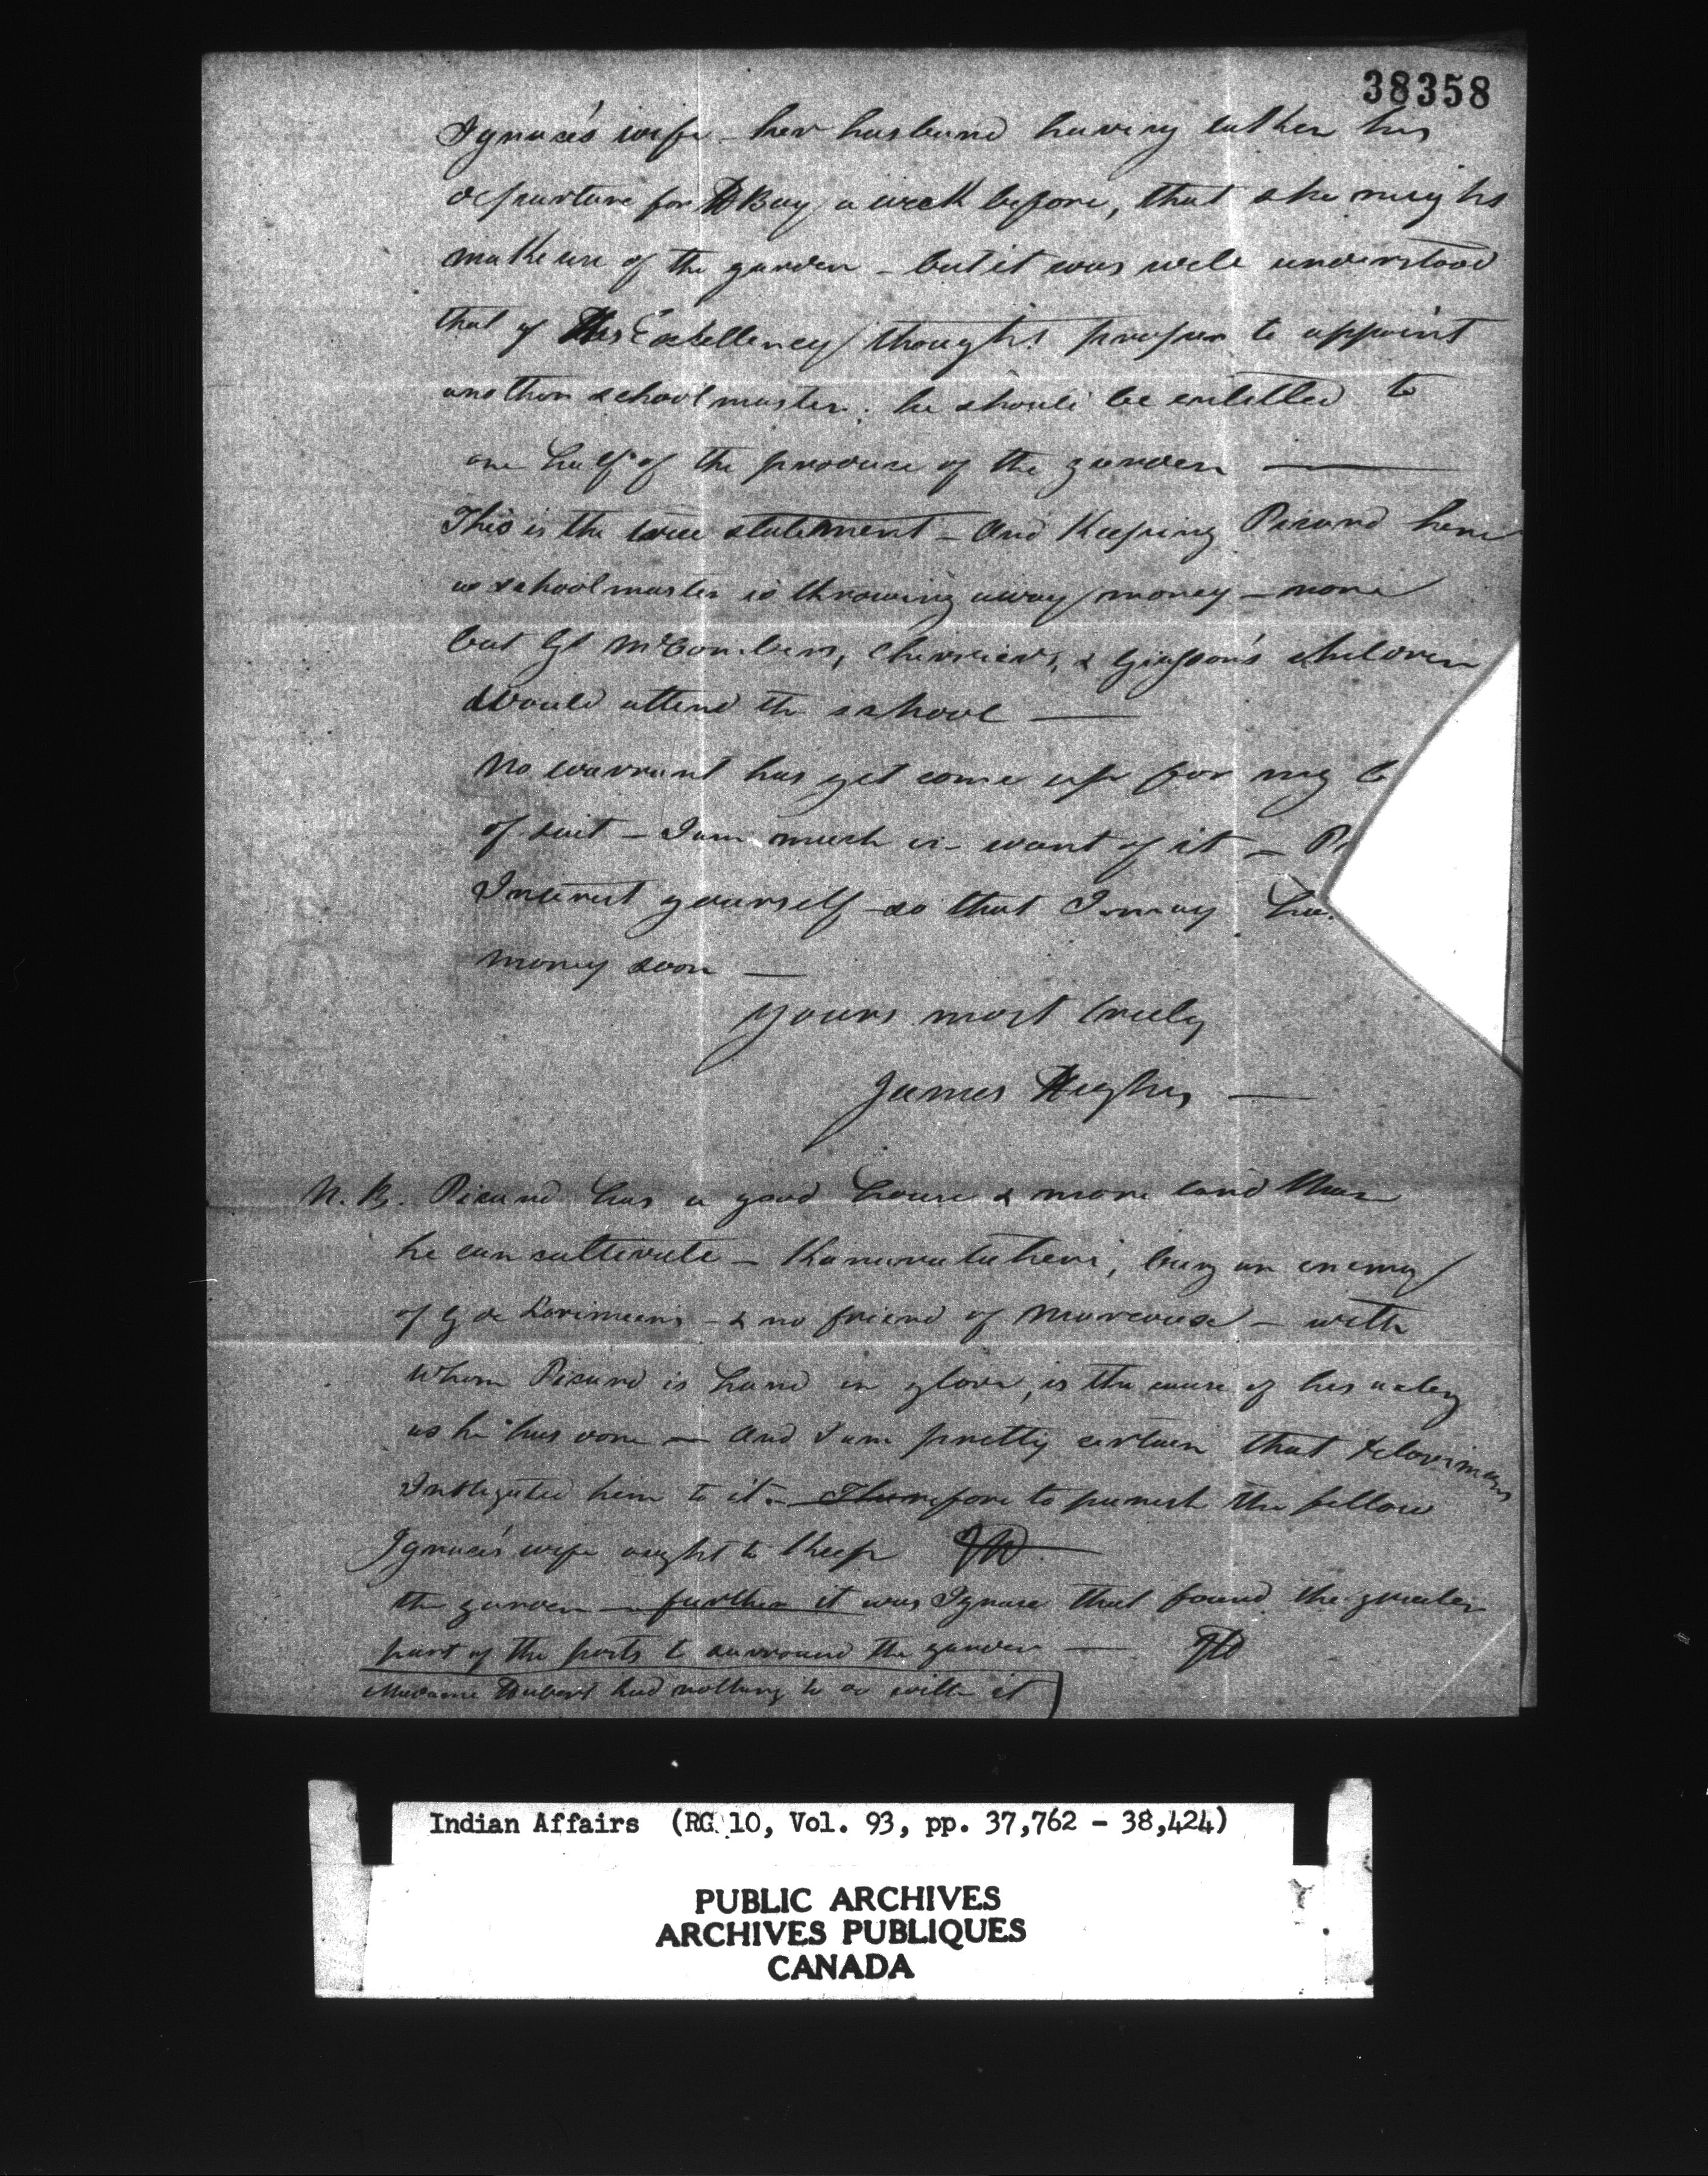 38358
Ignace's wife - her husband having taken his
departure for H Bay a week before, that she might
make use of the garden - but it was well understood
that if His Excellency thought proper to appoint
another schoolmaster, he should be entitled to
one half of the produce of the garden —
This is the true statement - and Keeping Picard here
as schoolmaster is throwing away money - none
but McCombers, & children
would attend the school —
No warrant has yet come up for my
of suit - I am much in want of it -
Interest yourself so that I may
money soon —
yours most truly
James Hughes —
N. B. Picard has a good house & more land than
he can cultivate - being an enemy
of G de Lorimier's - & no friend of Marcoux - with
whom Picard is hand in glove, is the cause of his acting
as he has done - and I am pretty certain that delorimier
Instigated him to it - Therefore to punish the fellow
Ignace's wife ought to keep JH
the garden - further it was Ignace that found the greater
part of the posts to surround the garden — JH
Madame Hubert had nothing to do with it
Indian Affairs (RG 10, Vol. 93, pp. 37,762 - 38,424)
PUBLIC ARCHIVES
ARCHIVES PUBLIQUES
CANADA